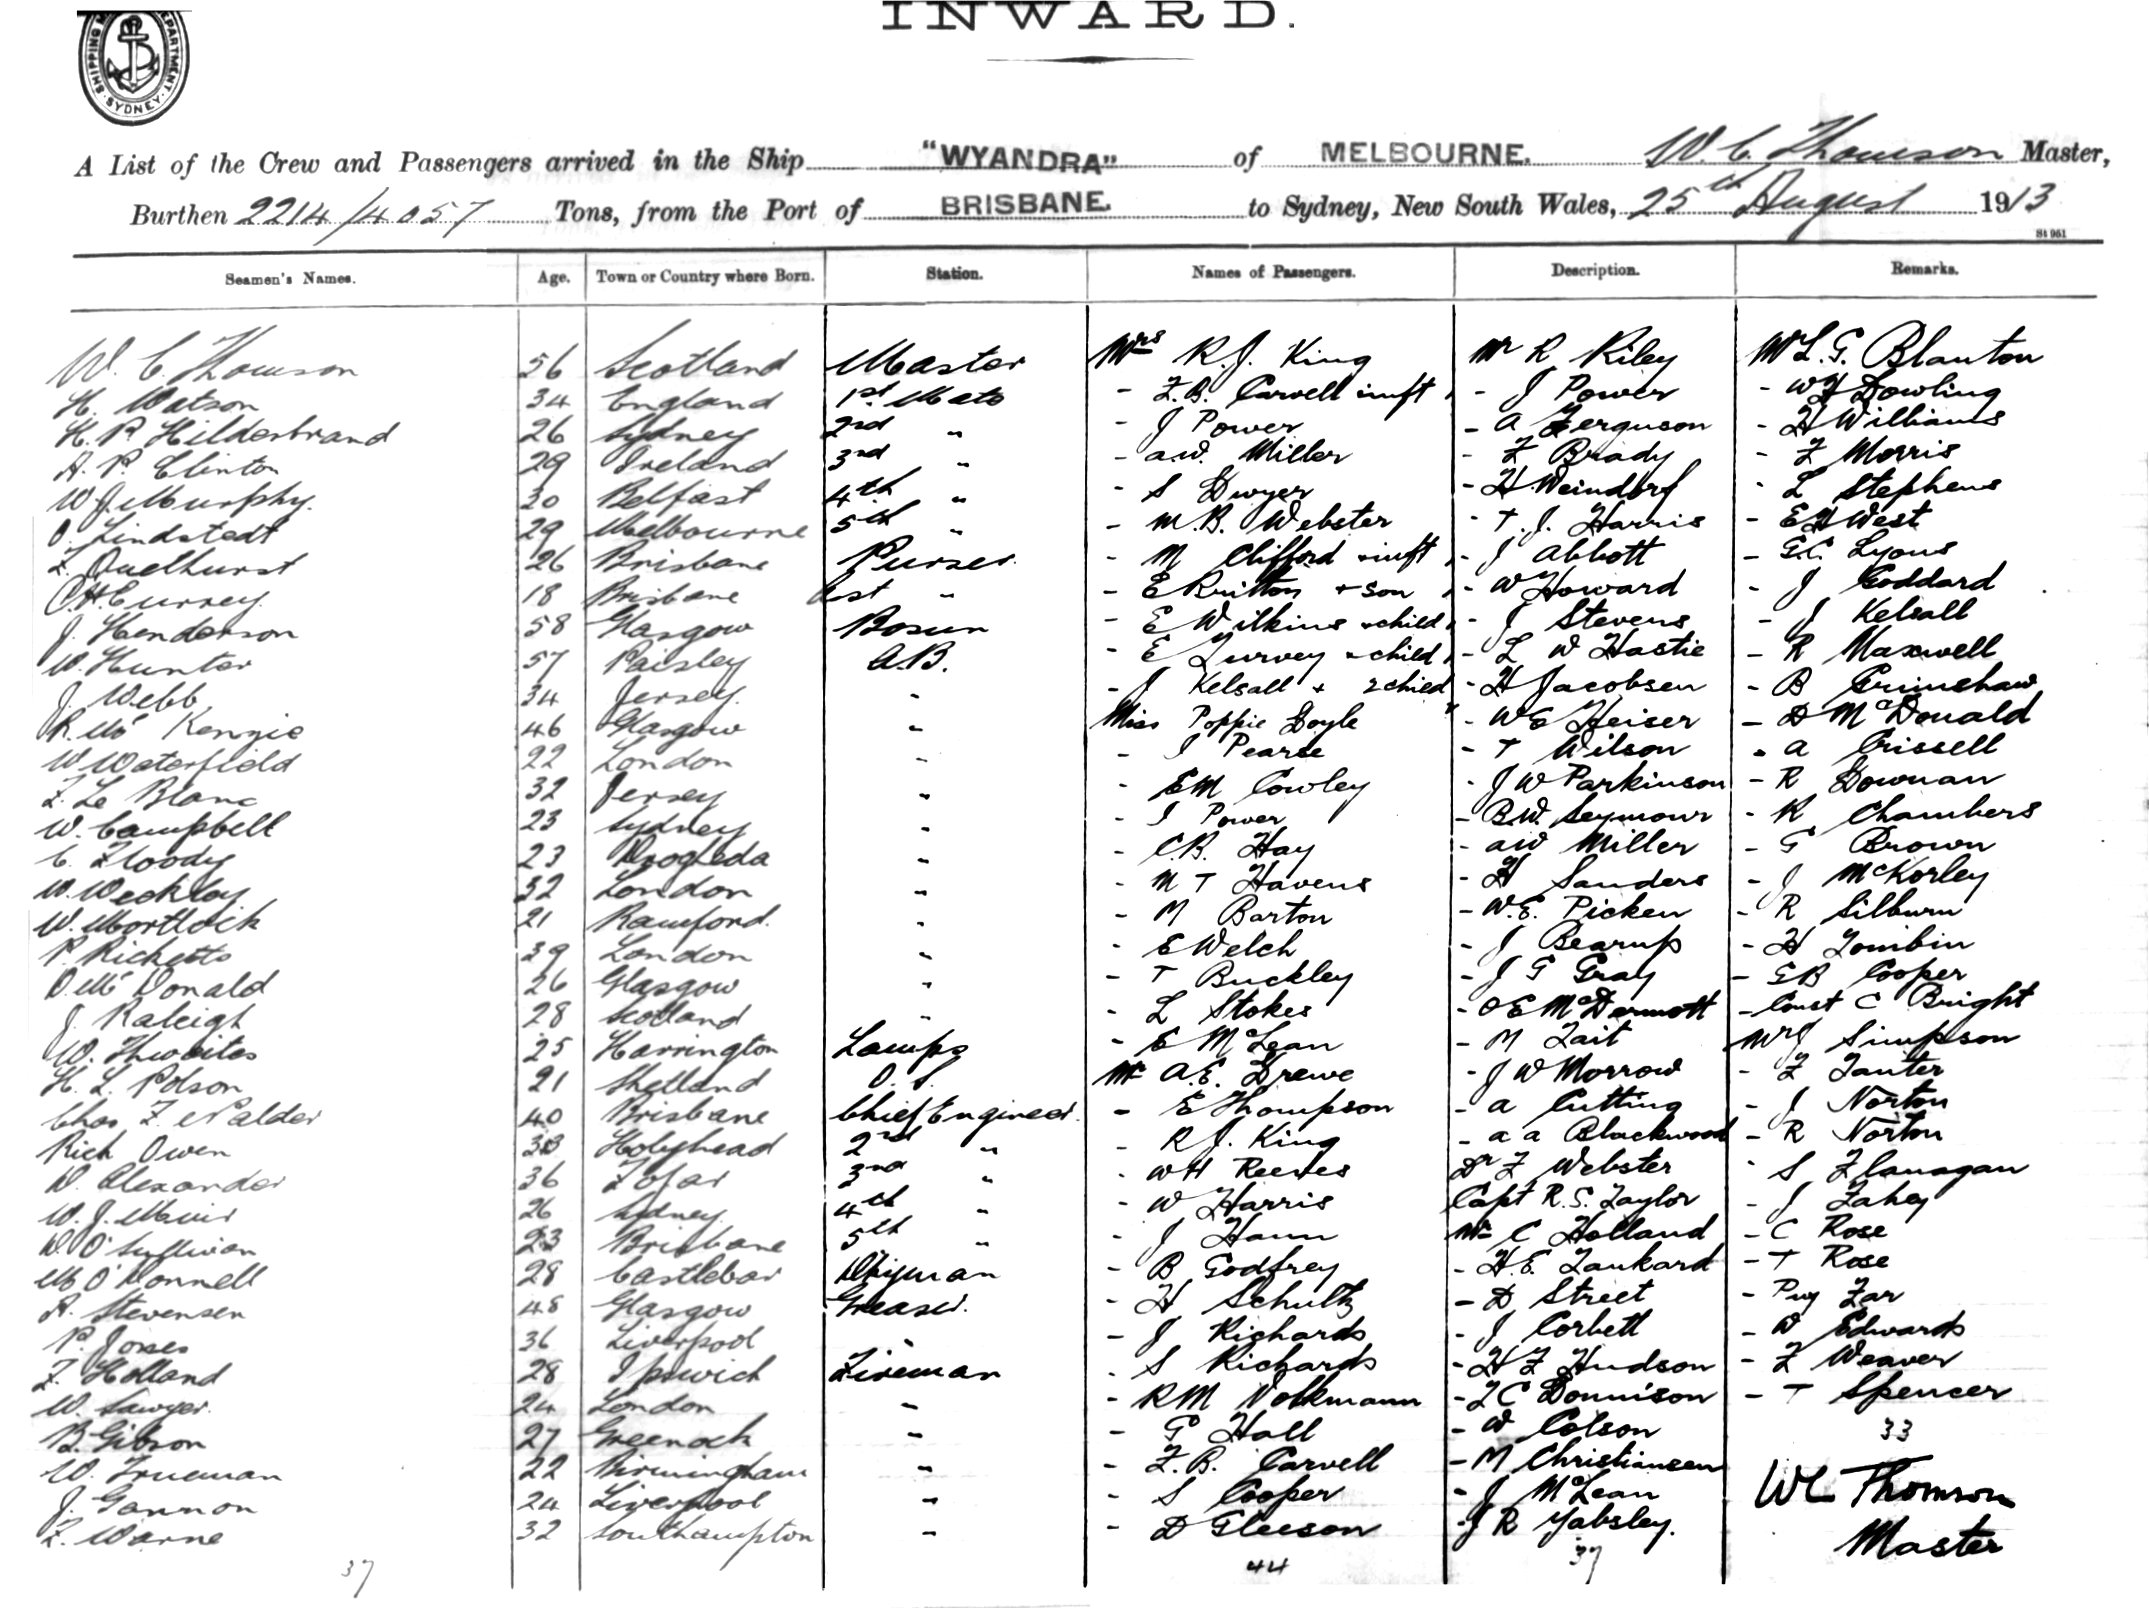 INWARD.
SHIPPING M DEPARTMENT. SYDNEY.
A List of the Crew and Passengers arrived in the Ship "WYANDRA" of MELBOURNE. W. C. Thomson Master,
Burthen 2214/4057 Tons, from the Port of BRISBANE. to Sydney, New South Wales, 25th August 1913
St 951
Seamen's Names. Age. Town or Country where Born. Station. Names of Passengers. Description. Remarks.
W. C. Thomson 56 Scotland Master Mrs R. J. King Mr R Riley Mr L. G. Blanton
H. Watson 34 England 1st Mate - F. B. Carvell inft - J Power - W F Dowling
H. P. Hilderbrand 26 Sydney 2nd " - J Power - A Ferguson - H Williams
A. P. Clinton 29 Ireland 3rd " - A.W. Miller - F Brady - F Morris
W J Murphy. 30 Belfast 4th " - S Dwyer - H Weindorf - L Stephens
O. Lindstedt 29 Melbourne 5th " - M. B. Webster - T. J. Harris - E H West
26 Brisbane Purser - M Clifford + inft - J Abbott - G.C. Lyons
C. H. Currey 18 Brisbane Asst " - E Ruitton + son - W Howard - J Goddard
J. Henderson 58 Glasgow Bosun - E Wilkins + child - J Stevens - J Kelsall
W. Hunter 57 Paisley A.B. - E Turvey + child - L W Hastie - R Maxwell
J. Webb 34 Jersey. " - J Kelsall + 2 child - H Jacobsen - B Grimshaw
R. Mc Kenzie 46 Glasgow " Miss Poppie Doyle " - W E Heiser - D McDonald
W Waterfield 22 London " - I Pearse - T Wilson - A Crissell
F. Le Blanc 32 Jersey " - E M Cowley - J W Parkinson - R Downan
W. Campbell 23 Sydney " - I Power - B.W. Seymour - R Chambers
C. Floody 23 Drogheda " - C. B. Hay - A W Miller - G Brown
W. Weckley 32 London " - M T Havens - H Sanders - J McKorley
W. Mortlock 21 Ramford. " - M Barton - W. E. Picken - R Silburn
P. Ricketts 39 London " - E Welch - J Bearup - H Tombin
D. Mc Donald 26 Glasgow " - T Buckley - J G Gray - G B Cooper
J. Raleigh 28 Scotland " - L Stokes - O E McDermott - Const C Bright
W. Thwaites 25 Harrington Lamps - E McLean - M Tait Mr J Simpson
H. L. Polson 21 Shetland O. S. Mr A. E. Drewe - J W Morrow - F Tanter
Chas. F. Nalder 40 Brisbane Chief Engineer. - E Thompson - A Cutting - J Norton
Rich Owen 33 Holyhead 2nd " - R J. King - A A Blackwood - R Norton
D. Alexander 36 2nd " - W H Reeves Dr F Webster - S Flanagan
W. J. Muir 26 Sydney 4th " - W Harris Capt R. S. Taylor - J Fahey
D. O'Sullivan 23 Brisbane 5th " - J Hann Mr C Holland - C Rose
M O'Donnell 28 Castlebar - B Godfrey - H. E. Tankard - T Rose
A. Stevensen 48 Glasgow Greaser. - H Schultz - D Street - Puy Far
P. Jones 36 Liverpool " - J Richards - J Corbett - W Edwards
F. Holland 28 Ipswich Fireman - S Richards - H F Hudson - F Weaver
W. Sawyer. 24 London " - R M Volkmann - F C Donnison - T Spencer
B. Gibson 27 Greenock " - G Hall - W Colson 33
W. Trueman 22 Birmingham " - F. B. Carvell - M Christiansen
J. Gannon 24 Liverpool " - S Cooper - J McLean W C Thomson
F. Warne 32 Southampton " - D Gleeson - J R Yabsley. Master
37 44 37